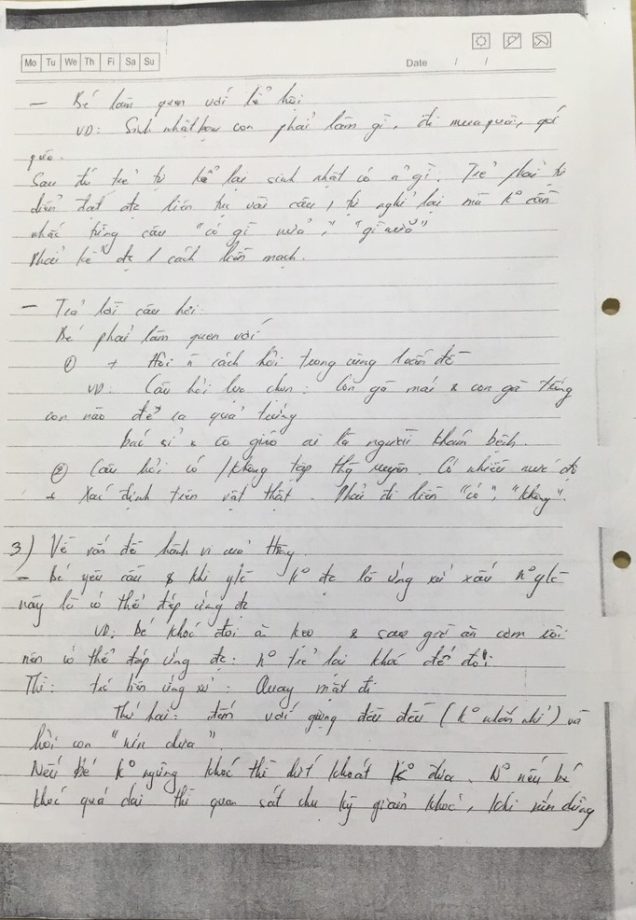 Mo Tu We Th Fi Sa Su
Date / /
- Bé làm quen với lễ hội
VD: Sinh nhật bạn con phải làm gì, đi mua quà, gói
quà.
Sau đó trẻ tự kể lại sinh nhật có n~ gì. Trẻ phải tự
diễn đạt đc liên tục vào câu, tự nghĩ lại mà ko cần
nhắc từng câu "có gì nữa", "gì nữa"
Phải kể đc 1 cách liền mạch.
- Trả lời câu hỏi
Bé phải làm quen với
① + Hỏi n~ cách hỏi trong cùng 1 vấn đề
VD: Câu hỏi lựa chọn: Con gà mái & con gà trống
con nào đẻ ra quả trứng
bác sĩ & cô giáo ai là người khám bệnh.
② Câu hỏi có / không tập thg xuyên. Có nhiều mức độ
+ Xác định trên vật thật. Phải đi liền "có", "không".
3) Về vấn đề hành vi của
- Bé yêu cầu & khi ko đc là ứng xử xấu
này là có thể đáp ứng đc
VD: Bé khóc đòi ăn kẹo & sau giờ ăn cơm rồi
nên có thể đáp ứng đc: trẻ lại khóc để đòi
Thì: trc tiên ứng xử: Quay mặt đi
Thứ hai: đếm với giọng đều đều (ko nhấn nhá) và
hỏi con "nín chưa".
Nếu bé ko ngừng khóc thì dứt khoát ko đưa. nếu bé
khóc quá dai thì quan sát chu kỳ gián khóc, khi nín dừng